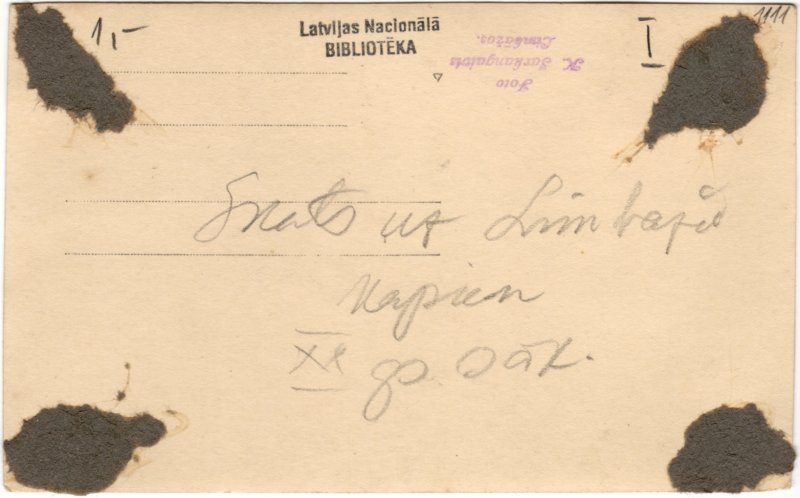 1,-
Latvijas Nacionālā
BIBLIOTĒKA
I
1111
Foto
K. Sarkangalvis
Limbažos.
Skats uz Limbažu
kapiem
XX gs. sāk.